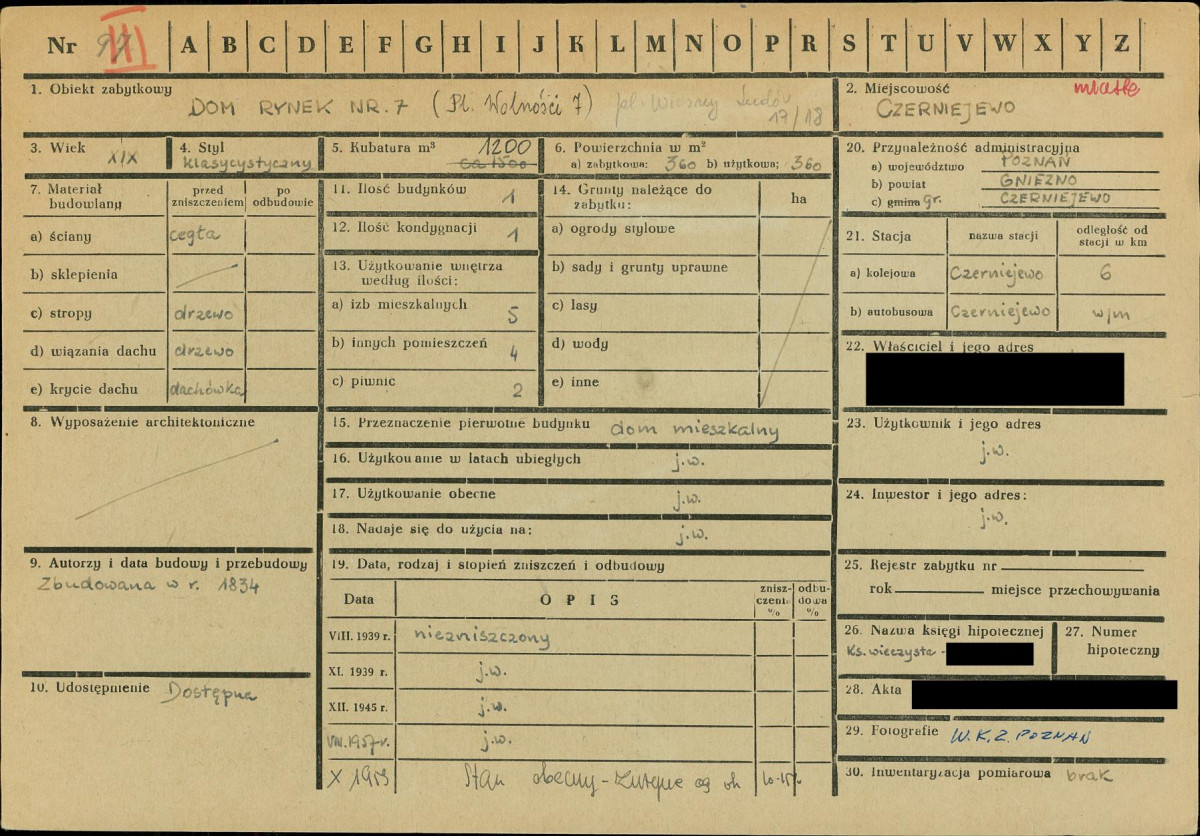 Nr 97 III A B C D E F G H I J K L M N O P R S T U V W X Y Z
1. Obiekt zabytkowy
DOM RYNEK NR. 7 (Pl. Wolności 7) pl. Wiosny Ludów
17/18
2. Miejscowość
miasto
CZERNIEJEWO
3. Wiek
XIX
4. Styl
klasycystyczny
5. Kubatura m³ 1200
ca 1500
6. Powierzchnia w m²
a) zabytkowa: 360 b) użytkowa: 360
20. Przynależność administracyjna
a) województwo POZNAŃ
b) powiat GNIEZNO
c) gmina gr. CZERNIEJEWO
7. Materiał budowlany
przed zniszczeniem
po odbudowie
a) ściany cegła
b) sklepienia
c) stropy drzewo
d) wiązania dachu drzewo
e) krycie dachu dachówka
11. Ilość budynków 1
12. Ilość kondygnacji 1
13. Użytkowanie wnętrza
według ilości:
a) izb mieszkalnych 5
b) innych pomieszczeń 4
c) piwnic 2
14. Grunty należące do
zabytku:
ha
a) ogrody stylowe
b) sady i grunty uprawne
c) lasy
d) wody
e) inne
21. Stacja
nazwa stacji
odległość od
stacji w km
a) kolejowa Czerniejewo 6
b) autobusowa Czerniejewo w/m
22. Właściciel i jego adres
8. Wyposażenie architektoniczne
15. Przeznaczenie pierwotne budynku dom mieszkalny
16. Użytkowanie w latach ubiegłych j.w.
17. Użytkowanie obecne j.w.
18. Nadaje się do użycia na: j.w.
23. Użytkownik i jego adres
j.w.
24. Inwestor i jego adres:
j.w.
9. Autorzy i data budowy i przebudowy
Zbudowana w r. 1834
10. Udostępnienie Dostępna
19. Data, rodzaj i stopień zniszczeń i odbudowy
Data
OPIS
znisz-
czenia
%
odbu-
dowa
%
VIII. 1939 r. niezniszczony
XI. 1939 r. j.w.
XII. 1945 r. j.w.
VIII. 1957 r. j.w.
X 1959 Stan obecny - 10-15%
25. Rejestr zabytku nr
rok miejsce przechowywania
26. Nazwa księgi hipotecznej
Ks. wieczysta -
27. Numer
hipoteczny
28. Akta
29. Fotografie W.K.Z. POZNAŃ
30. Inwentaryzacja pomiarowa brak